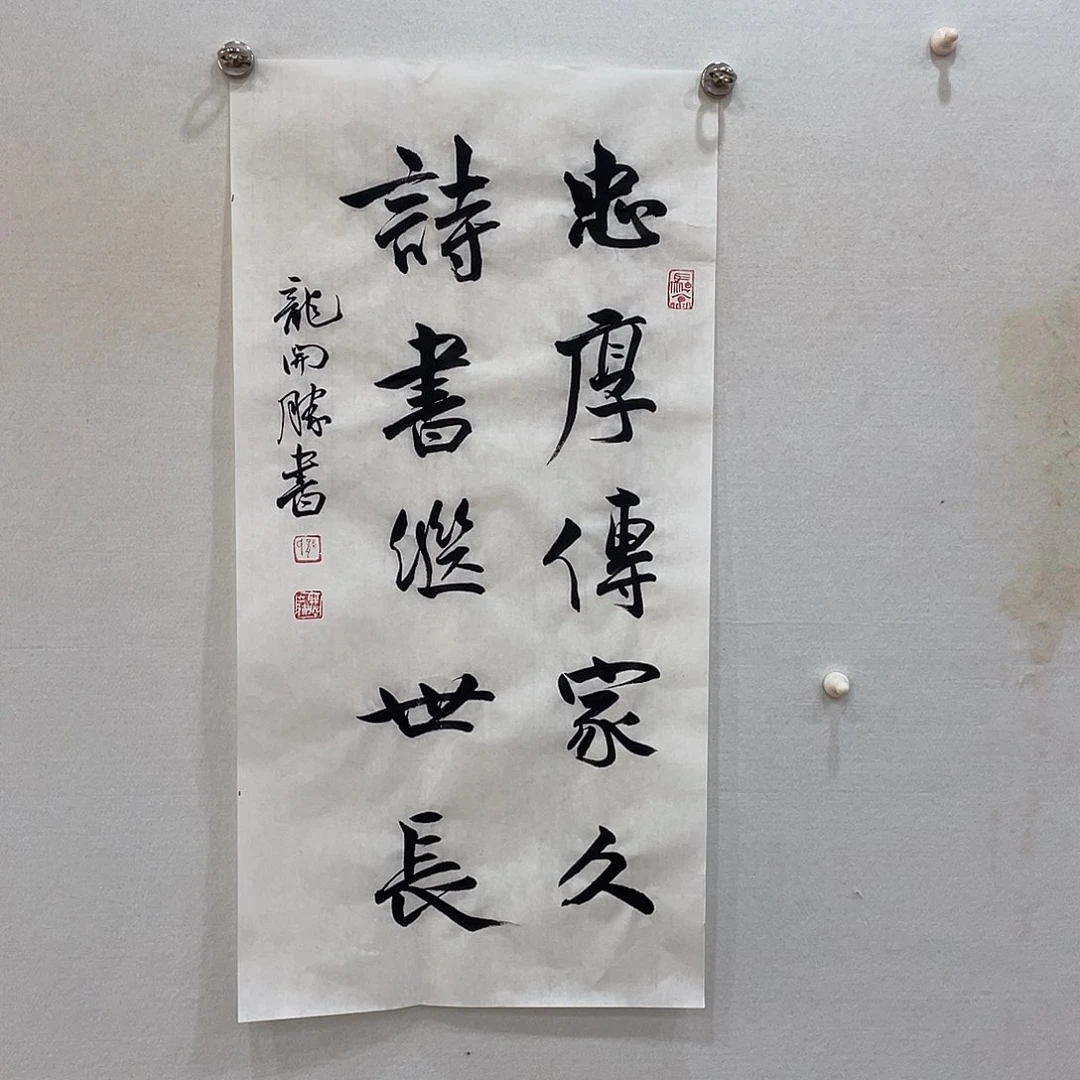 忠厚傳家久
詩書繼世長
龍開勝書